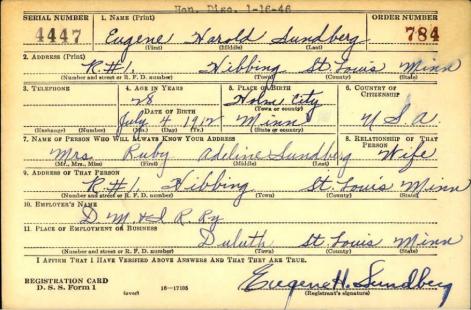 Hon. Disc. 1-16-46
SERIAL NUMBER 1. NAME (Print) ORDER NUMBER
4447 Eugene Harold Sundberg 784
(First) (Middle) (Last)
2. ADDRESS (Print)
R.#1. Hibbing St. Louis Minn
(Number and street or R. F. D. number) (Town) (County) (State)
3. TELEPHONE 4. AGE IN YEARS 5. PLACE OF BIRTH 6. COUNTRY OF CITIZENSHIP
28 City
DATE OF BIRTH (Town or county)
July 4 1912 Minn U.S.A.
(Exchange) (Number) (Mo.) (Day) (Yr.) (State or country)
7. NAME OF PERSON WHO WILL ALWAYS KNOW YOUR ADDRESS 8. RELATIONSHIP OF THAT PERSON
Mrs. Ruby Adeline Sundberg Wife
(Mr., Mrs., Miss) (First) (Middle) (Last)
9. ADDRESS OF THAT PERSON
R.#1. Hibbing St. Louis Minn
(Number and street or R. F. D. number) (Town) (County) (State)
10. EMPLOYER'S NAME
D. M. & I. R. Ry
11. PLACE OF EMPLOYMENT OR BUSINESS
Duluth St. Louis Minn
(Number and street or R. F. D. number) (Town) (County) (State)
I AFFIRM THAT I HAVE VERIFIED ABOVE ANSWERS AND THAT THEY ARE TRUE.
Eugene H. Sundberg
REGISTRATION CARD
D. S. S. Form 1 (over) 16—17105 (Registrant's signature)